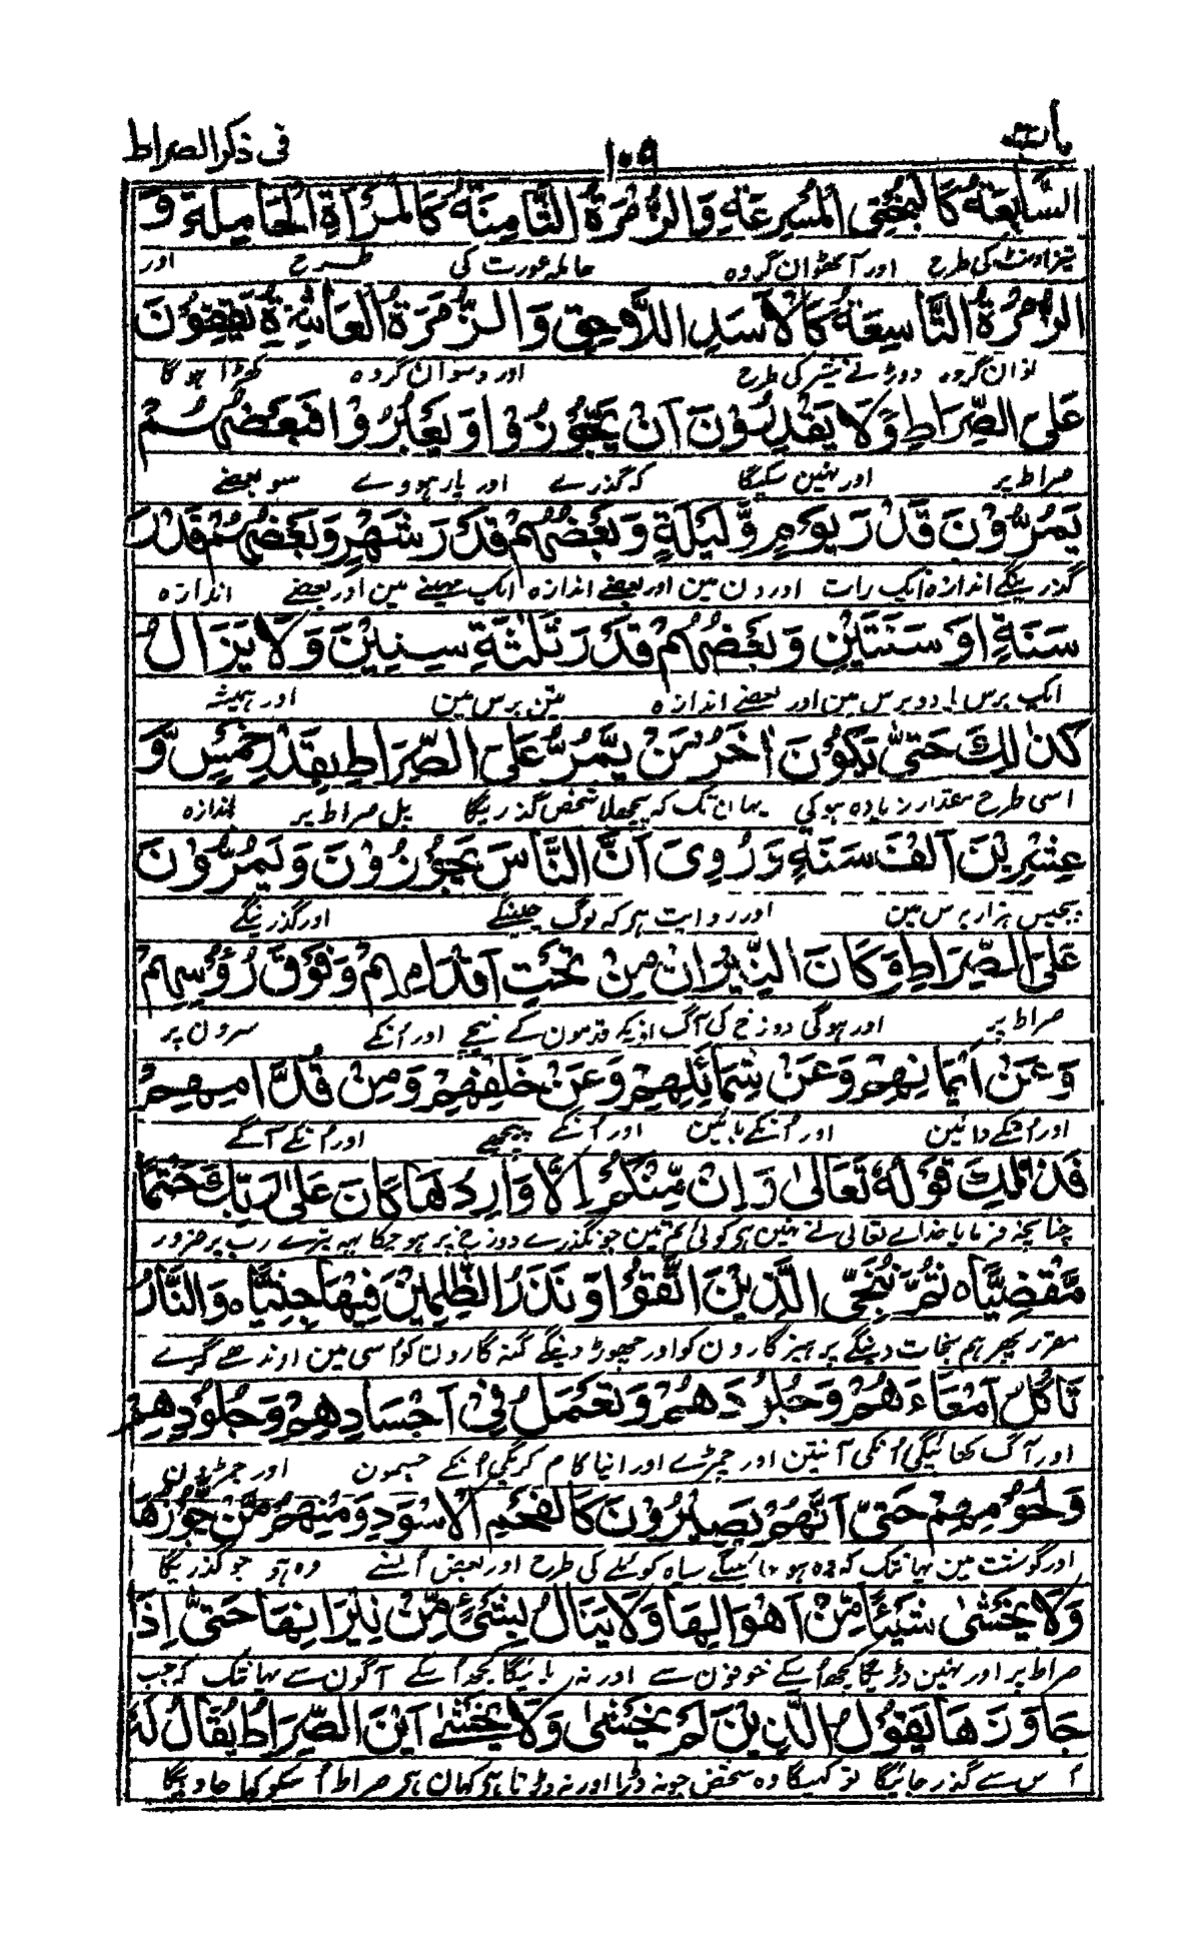 باب
١٠٩
فى ذكر الصراط
السَّابِعَةُ كَالْبُخْتِي الْمُسْرِعَةِ وَالزُّمْرَةُ الثَّامِنَةُ كَالْمَرْأَةِ الْحَامِلَةِ وَ
تیز اونٹ کی طرح اور آٹھوان گروہ حاملہ عورت کی طرح اور
الزُّمْرَةُ التَّاسِعَةُ كَالْأَسَدِ اللَّاوَحِقِ وَالزُّمْرَةُ الْعَاشِرَةُ يَقِفُوْنَ
نوان گروہ دوڑنے شیر کی طرح اور دسوان گروہ کھڑا ہو گا
عَلَى الصِّرَاطِ وَلَا يَقْدِرُوْنَ اَنْ يَّجُوْزُوْا وَيَعْبُرُوْا فَبَعْضُهُمْ
صراط پر اور نہین سکیگا کہ گذرے اور پار ہووے سو بعضے
يَمُرُّوْنَ قَدْرَ يَوْمٍ وَّلَيْلَةٍ وَبَعْضُهُمْ قَدْرَ شَهْرٍ وَبَعْضُهُمْ قَدْرَ
گذرینگے اندازہ ایک رات اور دن مین اور بعضے اندازہ ایک مہینے مین اور بعضے اندازہ
سَنَةٍ اَوْ سَنَتَيْنِ وَبَعْضُهُمْ قَدْرَ ثَلٰثَةِ سِنِيْنَ وَلَا يَزَالُ
ایک برس یا دو برس مین اور بعضے اندازہ تین برس مین اور ہمیشہ
كَذٰلِكَ حَتّٰى يَكُوْنَ اٰخَرُ مَنْ يَّمُرُّ عَلَى الصِّرَاطِ بِقَدْرِ خَمْسٍ وَّ
اسی طرح مقدار زیادہ ہو کی یہان تک کہ پچھلا شخص گذریگا پل صراط پر بندازہ
عِشْرِيْنَ اَلْفَ سَنَةٍ وَرُوِىَ اَنَّ النَّاسَ يَجُوْزُوْنَ وَيَمُرُّوْنَ
پچیس ہزار برس مین اور روایت ہی کہ لوگ چلینگے اور گذرینگے
عَلَى الصِّرَاطِ وَكَانَ النِّيْرَانُ مِنْ تَحْتِ اَقْدَامِهِمْ وَفَوْقَ رُؤُسِهِمْ
صراط پر اور ہوگی دوزخ کی آگ قدمون کے نیچے اور اُنکے سرون پر
وَعَنْ اَيْمَانِهِمْ وَعَنْ شِمَائِلِهِمْ وَعَنْ خَلْفِهِمْ وَمِنْ قُدَّامِهِمْ
اور اُنکے دائین اور اُنکے بائین اور اُنکے پیچھے اور اُنکے آگے
فَذٰلِكَ قَوْلُهٗ تَعَالٰى وَاِنْ مِّنْكُمْ اِلَّا وَارِدُهَا كَانَ عَلٰى رَبِّكَ حَتْمًا
چنانچہ فرمایا خداے تعالی نے نہین ہی کوئی تم مین جو نگذرے دوزخ پر ہو چکا یہ تیرے رب پر ضرور
مَّقْضِيًّا ثُمَّ نُنَجِّى الَّذِيْنَ اتَّقَوْا وَّنَذَرُ الظّٰلِمِيْنَ فِيْهَا جِثِيًّا وَالنَّارُ
مقرر پھر ہم نجات دینگے پرہیزگارون کو اور چھوڑ دینگے گنہ گارون کو اُسی مین اوندھے گرے
تَأكُلُ اَمْعَاءَهُمْ وَجُلُوْدَهُمْ وَتَعْمَلُ فِىْ اَجْسَادِهِمْ وَجُلُوْدِهِمْ
اور آگ کھائیگی اُنکی آنتین اور چمڑے اور اپنا کام کریگی اُنکے جسمون اور چمڑیون
وَلُحُوْمِهِمْ حَتّٰى اَنَّهُمْ يَصِيْرُوْنَ كَالْفَحْمِ الْاَسْوَدِ وَمِنْهُمْ مَّنْ يَّجُوْزُهَا
اور گوشت مین یہانتک کہ وہ ہو جائینگے سیاہ کوئلے کی طرح اور بعض اُنسے وہ ہی جو گذریگا
وَلَا يَخْشٰى شَيْئًا مِّنْ اَهْوَالِهَا وَلَا يَنَالُ بِشَئٍ مِّنْ نِيْرَانِهَا حَتّٰى اِذَا
صراط پر اور نہین ڈریگا کچھ اُسکے خوفون سے اور نہ پائیگا کچھ اُسکے آگون سے یہانتک کہ جب
جَاوَزَهَا يَقُوْلُ الَّذِيْنَ لَمْ يَخْشٰى وَلَا يَخْشٰے اَيْنَ الصِّرَاطُ يُقَالُ لَهٗ
اُس سے گذر جائیگا تو کہیگا وہ شخص جو نہ ڈرا اور نہ ڈرتا ہی کہان ہی صراط اُسکو کہا جاویگا